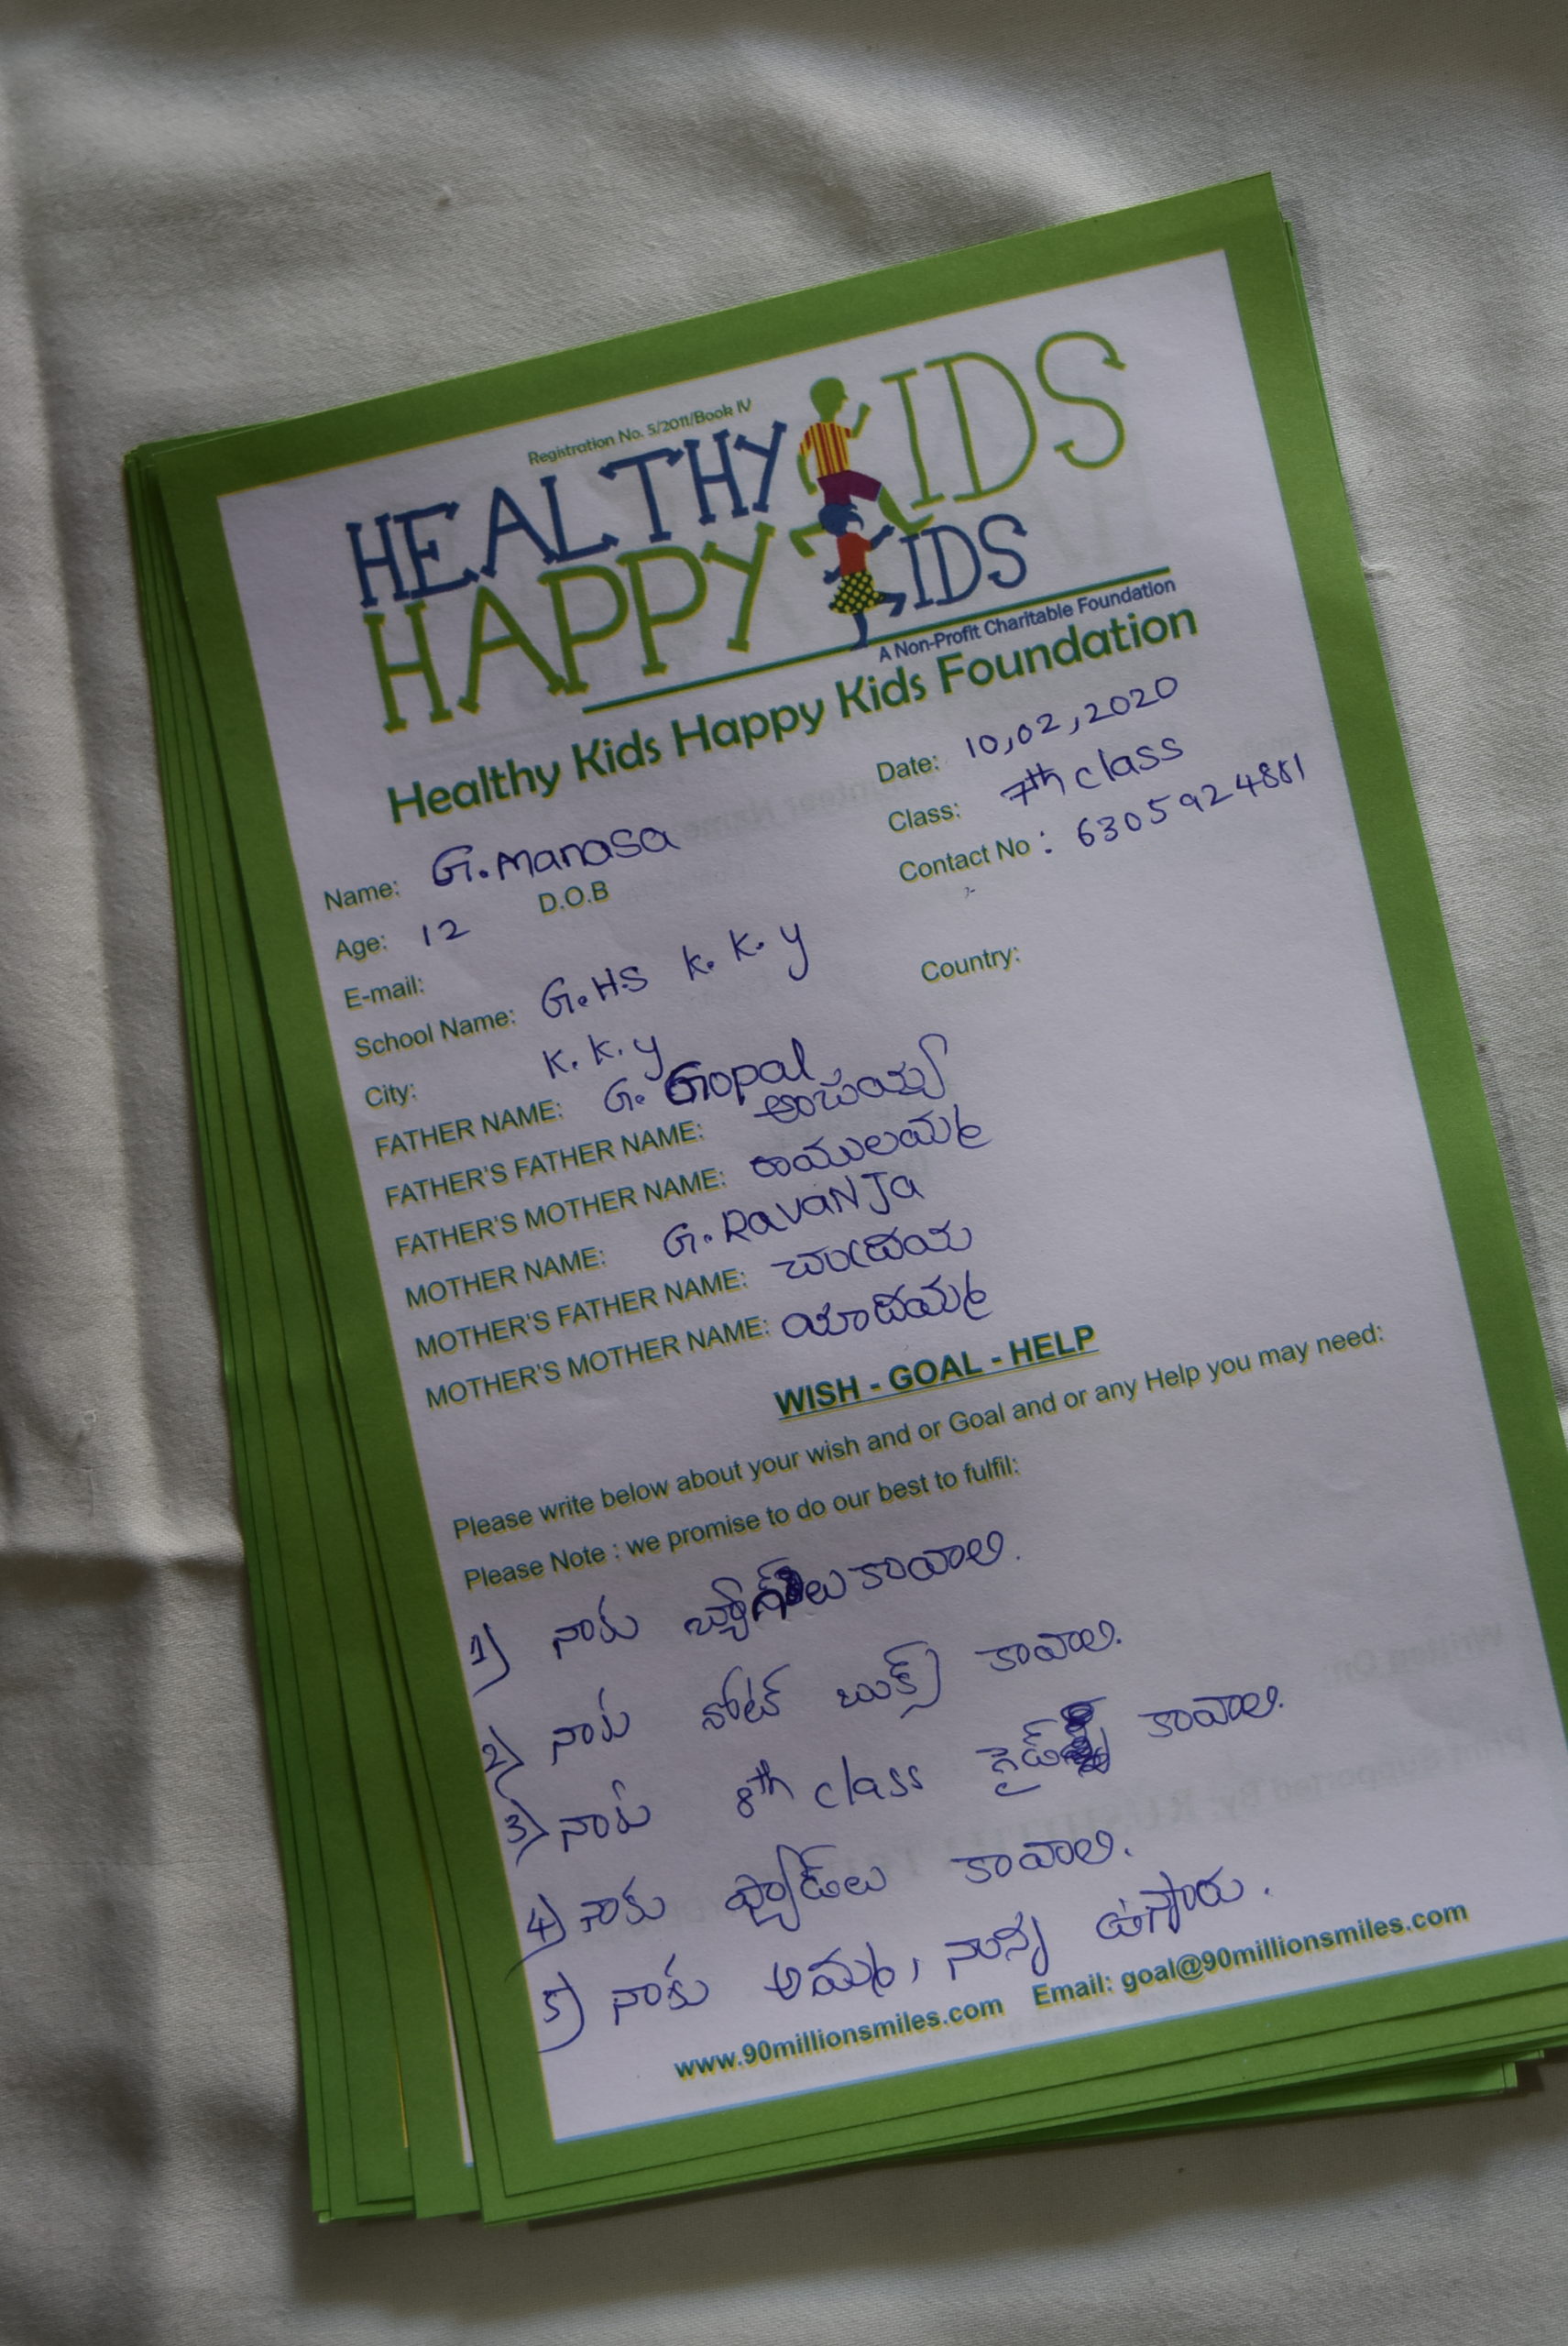 Registration No. 5/2011/Book IV
HEALTHY KIDS
HAPPY KIDS
A Non-Profit Charitable Foundation
Healthy Kids Happy Kids Foundation
Date: 10,02,2020
Name: G. Manasa Class: 7th class
Age: 12 D.O.B Contact No : 6305924881
E-mail:
School Name: G.H.S K. K. y Country:
City: K. K. y
FATHER NAME: G. Gopal
FATHER'S FATHER NAME: అంపయ్య
FATHER'S MOTHER NAME: రాములమ్మ
MOTHER NAME: G. RavaNJa
MOTHER'S FATHER NAME:
MOTHER'S MOTHER NAME: యాదమ్మ
WISH - GOAL - HELP
Please write below about your wish and or Goal and or any Help you may need:
Please Note : we promise to do our best to fulfil:
1) నాకు బ్యాగ్‌లు కావాలి.
2) నాకు నోట్ బుక్స్ కావాలి.
3) నాకు 8th class గైడ్ కావాలి.
4) నాకు ప్యాడ్‌లు కావాలి.
5) నాకు అమ్మ, నాన్న ఉన్నారు.
www.90millionsmiles.com Email: goal@90millionsmiles.com